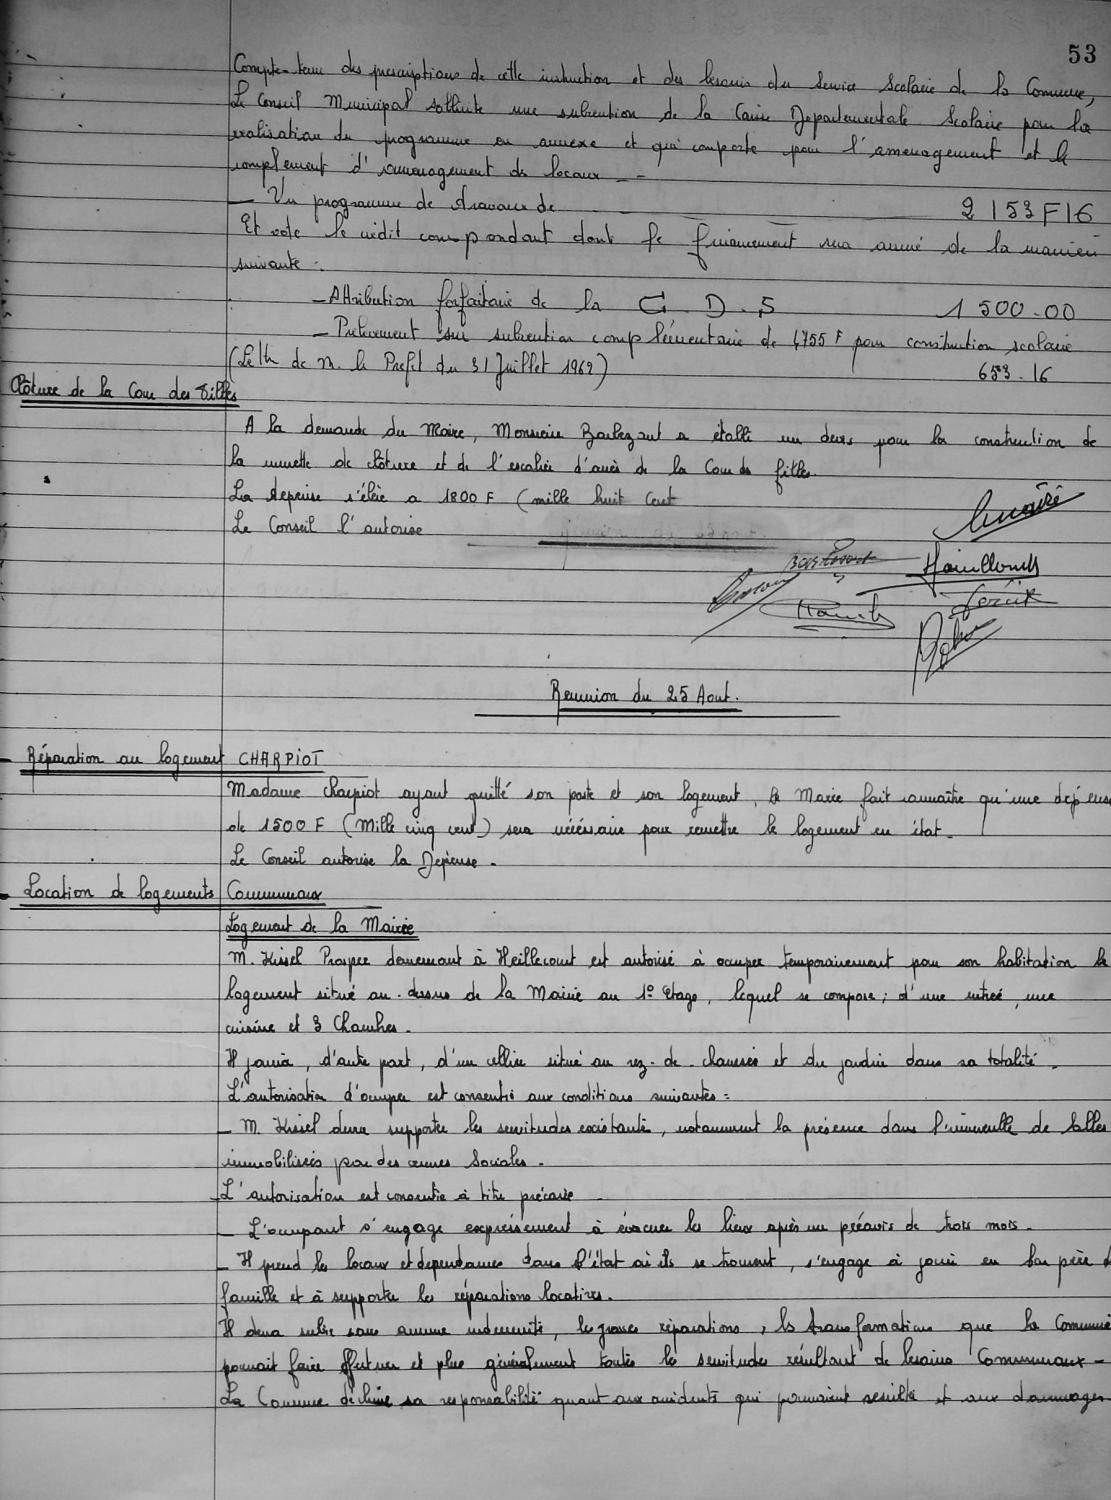 53
Compte-tenu des prescriptions de cette instruction et des besoins du Service Scolaire de la Commune,
Le Conseil Municipal sollicite une subvention de la Caisse Departementale Scolaire pour la
realisation du programme en annexe et qui comporte pour l'amenagement et le
complement d'amenagement de locaux --
- Un programme de travaux de 2153F16
Et vote le crédit correspondant dont le financement sera assuré de la manière
suivante :
- Attribution forfaitaire de la C.D.S 1 500.00
- Prélèvement sur subvention complémentaire de 4755 F pour construction scolaire
(Lettre de M. le Préfet du 31 Juillet 1962) 653.16
Clôture de la Cour des Filles
A la demande du Maire, Monsieur a établi un devis pour la construction de
la murette de clôture et de l'escalier d'accès de la Cour des filles.
La depense s'élève a 1800 F (mille huit cent
Le Conseil l'autorise
Reunion du 25 Aout.
- Réparation au logement CHARPIOT
Madame Charpiot ayant quitté son poste et son logement, le Maire fait connaître qu'une dépense
de 1500 F (Mille cinq cent) sera nécéssaire pour remettre le logement en état.
Le Conseil autorise la Depense.
- Location de logements Communaux
Logement de la Mairie
M. Kissel Prosper demeurant à Heillecourt est autorisé à occuper temporairement pour son habitation le
logement situé au-dessus de la Mairie au 1° Etage, lequel se compose ; d'une entrée, une
cuisine et 3 Chambres.
Il jouira, d'autre part, d'un cellier situé au rez-de-chaussée et du jardin dans sa totalité.
L'autorisation d'occuper est consentie aux conditions suivantes :
- M. Kissel devra supporter les servitudes existantes, notamment la présence dans l'immeuble de Salles
immobilisées par des œuvres Sociales.
- L'autorisation est consentie à titre précaire
- L'occupant s'engage expressément à évacuer les lieux après un préavis de trois mois.
- Il prend les locaux et dependances dans l'état où ils se trouvent, s'engage à jouir en bon père de
famille et à supporter les réparations locatives.
Il devra subir sans aucune indemnité, les grosses réparations, les transformations que la Commune
pourrait faire effectuer et plus généralement toutes les servitudes résultant de besoins Communaux -
La Commune décline sa responsabilité quant aux accidents qui pourraient resulter et aux dommages